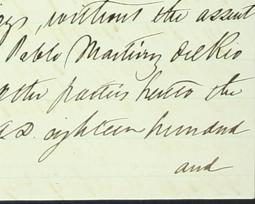 without the assent
Pablo Martinez del Rio
other parties hereto the
A.D. eighteen hundred
and